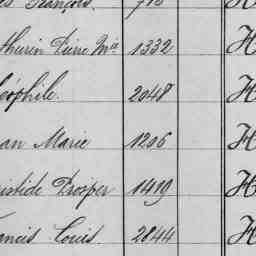 François. 713
thurin Pierre Mie 1332 H
éophile. 2048 H
an Marie 1206 H
istide Prosper 1419 H
ancis Louis. 2844 H